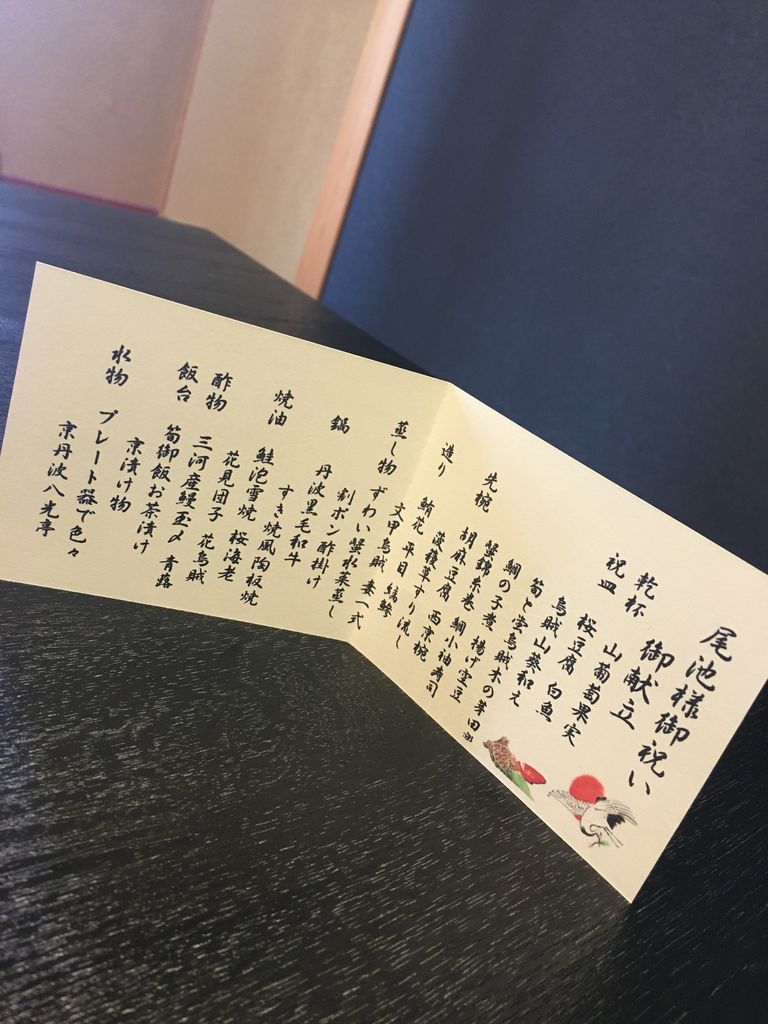 尾池様御祝い
御献立
乾杯 山葡萄果実
祝皿 桜豆腐 白魚
烏賊山葵和え
筍と蛍烏賊木の芽田楽
鯛の子煮 揚げ空豆
蟹錦糸巻 鯛小袖寿司
先椀 胡麻豆腐 西京椀
菠薐草すり流し
造り 鮪花 平目 縞鯵
文甲烏賊 妻一式
蒸し物 ずわい蟹水菜蒸し
割ポン酢掛け
鍋 丹波黒毛和牛
すき焼風陶板焼
焼油 鮭泡雪焼 桜海老
花見団子 花烏賊
酢物 三河産鰻玉〆 青蕗
飯台 筍御飯お茶漬け
京漬け物
水物 プレート器で色々
京丹波八光亭